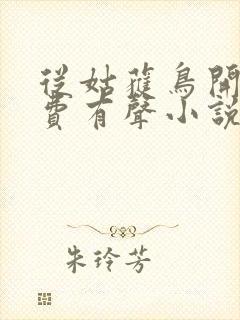 從姑獲鳥開
費有聲小説
朱玲芳